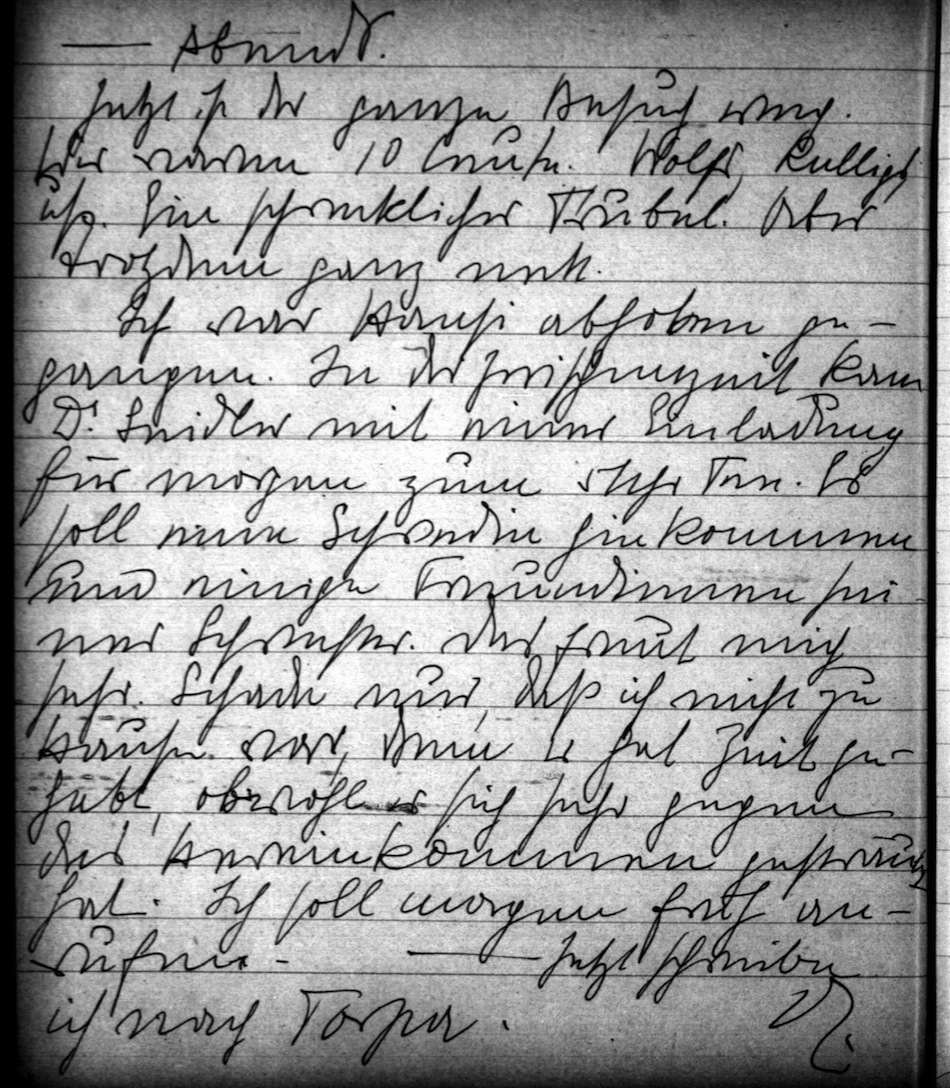 — Abends.
Jetzt ist der ganze Besuch weg.
Wir waren 10 Leute. Wolfs, Kulligs
usw. Ein schrecklicher Trubel. Aber
trotzdem ganz nett.
Ich war Hansi abholen ge-
gangen. In der Zwischenzeit kam
Dr. Seidler mit einer Einladung
für morgen zum 5 Uhr Tee. Es
soll eine Schwedin hinkommen
und einige Freundinnen sei-
ner Schwester. Das freut mich
sehr. Schade nur, daß ich nicht zu
Hause war, denn er hat Zeit ge-
habt, obwohl er sich sehr gegen
das Hereinkommen gesträubt
hat. Ich soll morgen früh an-
rufen. — Jetzt schreibe
ich nach